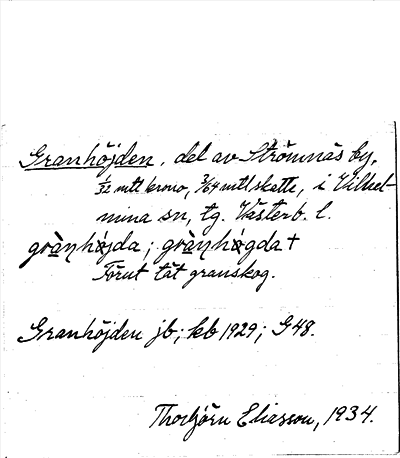 Granhöjden, del av Strömnäs by,
1/32 mtl krono, 3/64 mtl skatte, i Vilhel-
mina sn, tg. Västerb. l.
grànhøjda; grànhøgda †
Förut tät granskog.
Granhöjden jb; kb 1929; G 48.
Thorbjörn Eliasson, 1934.